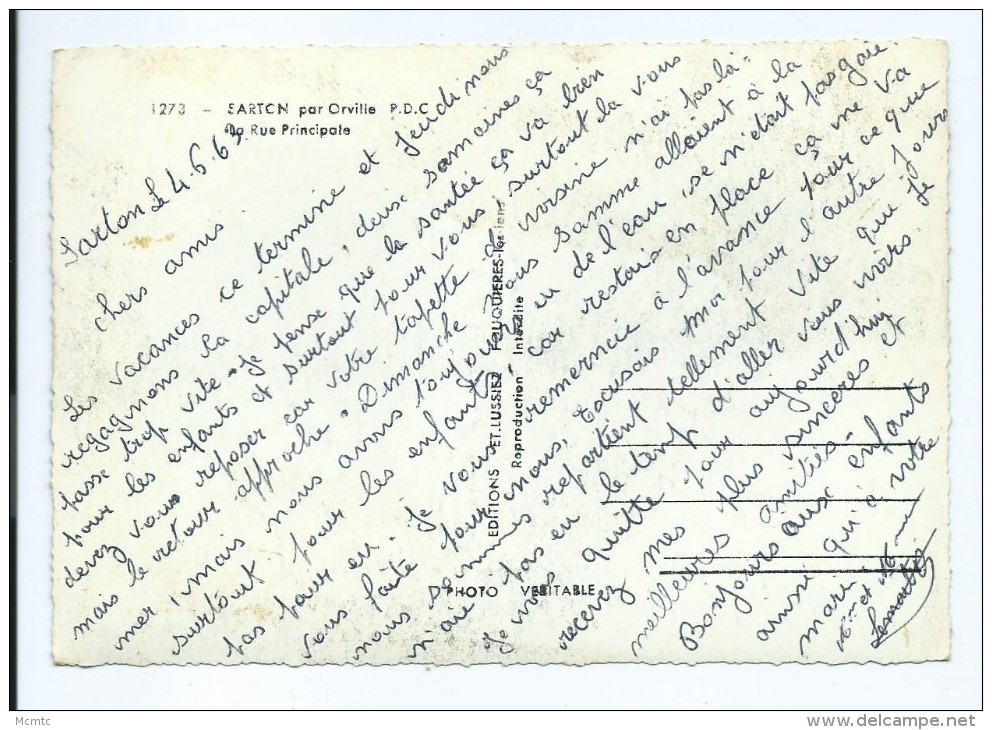 1273 - SARTON par Orville P.D.C
La Rue Principale
EDITIONS ET. LUSSIEZ FOUQUIERES-les-lens
Reproduction Interdite
PHOTO VERITABLE
Sarton Le 4.6.63
Chers amis
Les vacances ce termine et jeudi nous
regagnons la capitale, deux semaines ça
passe trop vite. Je pense que la santée ça va bien
pour les enfants et surtout pour vous surtout la vous
devez vous reposer car votre tapette de voisine n'ai pas là.
mais le retour approche" Dimanche nous somme allaient à la
mer, mais nous avons toujours en de l'eau, se n'était pas gaie
surtout pour les enfants car restais en place ça ne va
pas pour eu. Je vous remerncie à l'avance pour ce que
vous faite pour nous, Escusais moi pour l'autre jours
nous sommes repartient tellement vite que je
n'aie pas eu le temp d'aller vous voirs.
Je vous quitte pour aujourd'hui
recevez mes plus sincères et
meilleures amitiés.
Bonjours aux enfants
ainsie qu'à votre
mari
Mr et Mme
Mcmtc
delcampe.net